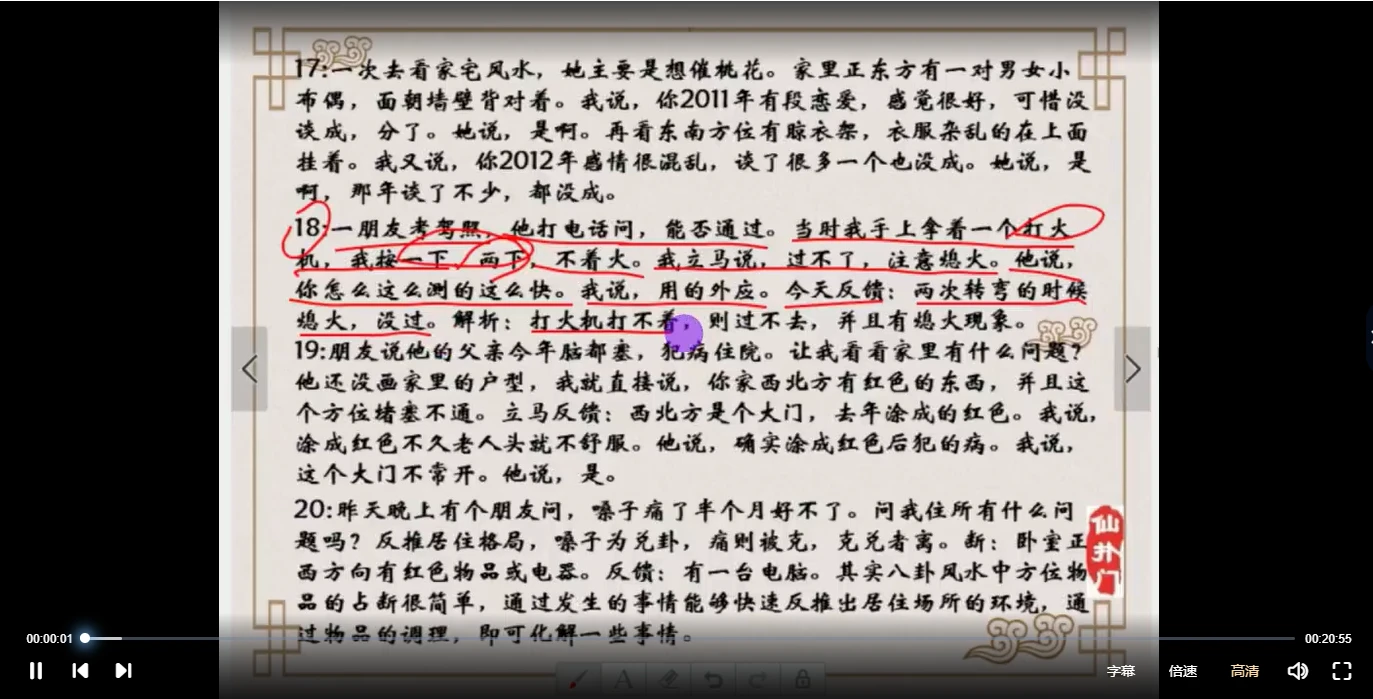 17:一次去看家宅风水，她主要是想催桃花。家里正东方有一对男女小
布偶，面朝墙壁背对着。我说，你2011年有段恋爱，感觉很好，可惜没
谈成，分了。她说，是啊。再看东南方位有晾衣架，衣服杂乱的在上面
挂着。我又说，你2012年感情很混乱，谈了很多一个也没成。她说，是
啊，那年谈了不少，都没成。
18:一朋友考驾照，他打电话问，能否通过。当时我手上拿着一个打火
机，我按一下，两下，不着火。我立马说，过不了，注意熄火。他说，
你怎么这么测的这么快。我说，用的外应。今天反馈：两次转弯的时候
熄火，没过。解析：打火机打不着，则过不去，并且有熄火现象。
19:朋友说他的父亲今年脑都塞，犯病住院。让我看看家里有什么问题？
他还没画家里的户型，我就直接说，你家西北方有红色的东西，并且这
个方位堵塞不通。立马反馈：西北方是个大门，去年涂成的红色。我说，
涂成红色不久老人头就不舒服。他说，确实涂成红色后犯的病。我说，
这个大门不常开。他说，是。
20:昨天晚上有个朋友问，嗓子痛了半个月好不了。问我住所有什么问
题吗？反推居住格局，嗓子为兑卦，痛则被克，克兑者离。断：卧室正
西方向有红色物品或电器。反馈：有一台电脑。其实八卦风水中方位物
品的占断很简单，通过发生的事情能够快速反推出居住场所的环境，通
过物品的调理，即可化解一些事情。
仙井门
00:00:01
00:20:55
A
字幕
倍速
高清